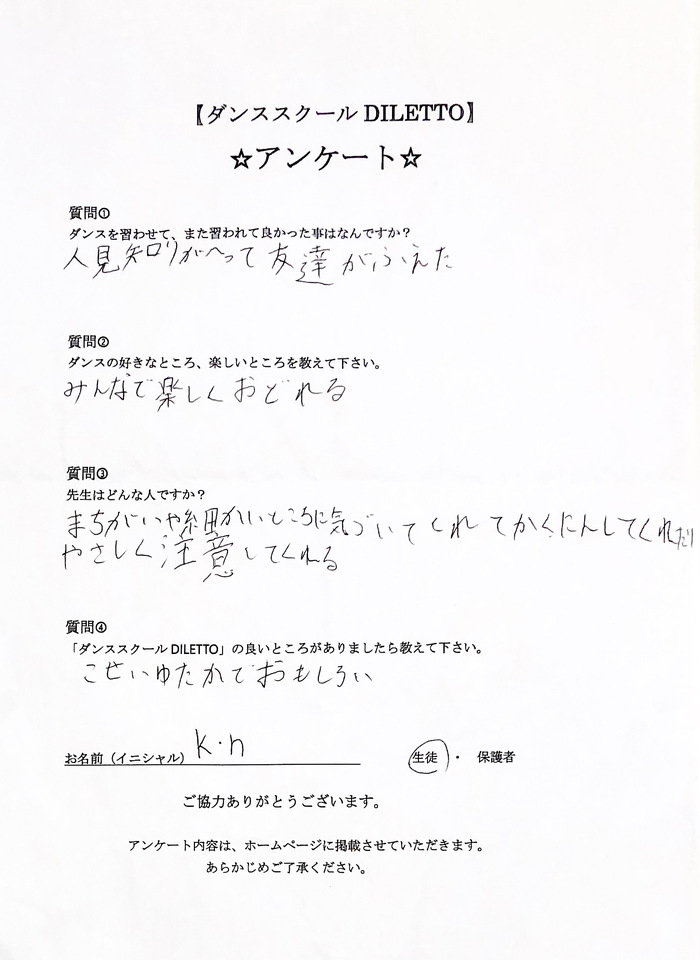 【ダンススクール DILETTO】
☆アンケート☆
質問①
ダンスを習わせて、また習われて良かった事はなんですか？
人見知りがへって友達がふえた
質問②
ダンスの好きなところ、楽しいところを教えて下さい。
みんなで楽しくおどれる
質問③
先生はどんな人ですか？
まちがいや細かいところに気づいてくれてかくにんしてくれたり
やさしく注意してくれる
質問④
「ダンススクール DILETTO」の良いところがありましたら教えて下さい。
こせいゆたかでおもしろい
お名前（イニシャル） k・n 生徒 ・ 保護者
ご協力ありがとうございます。
アンケート内容は、ホームページに掲載させていただきます。
あらかじめご了承ください。